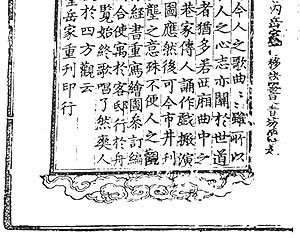 今人之歌曲〻雖所以
人之心志亦關於世道
者猶多若西廂曲中之
巷家傳人誦作戲搬演
圖應然後可今市井刊
壟之意殊不便人之觀
經書重寫繪圖參訂編
合使寓於客邸行於舟
覽始終歌唱了然爽人
於四方觀云
岳家重刊印行